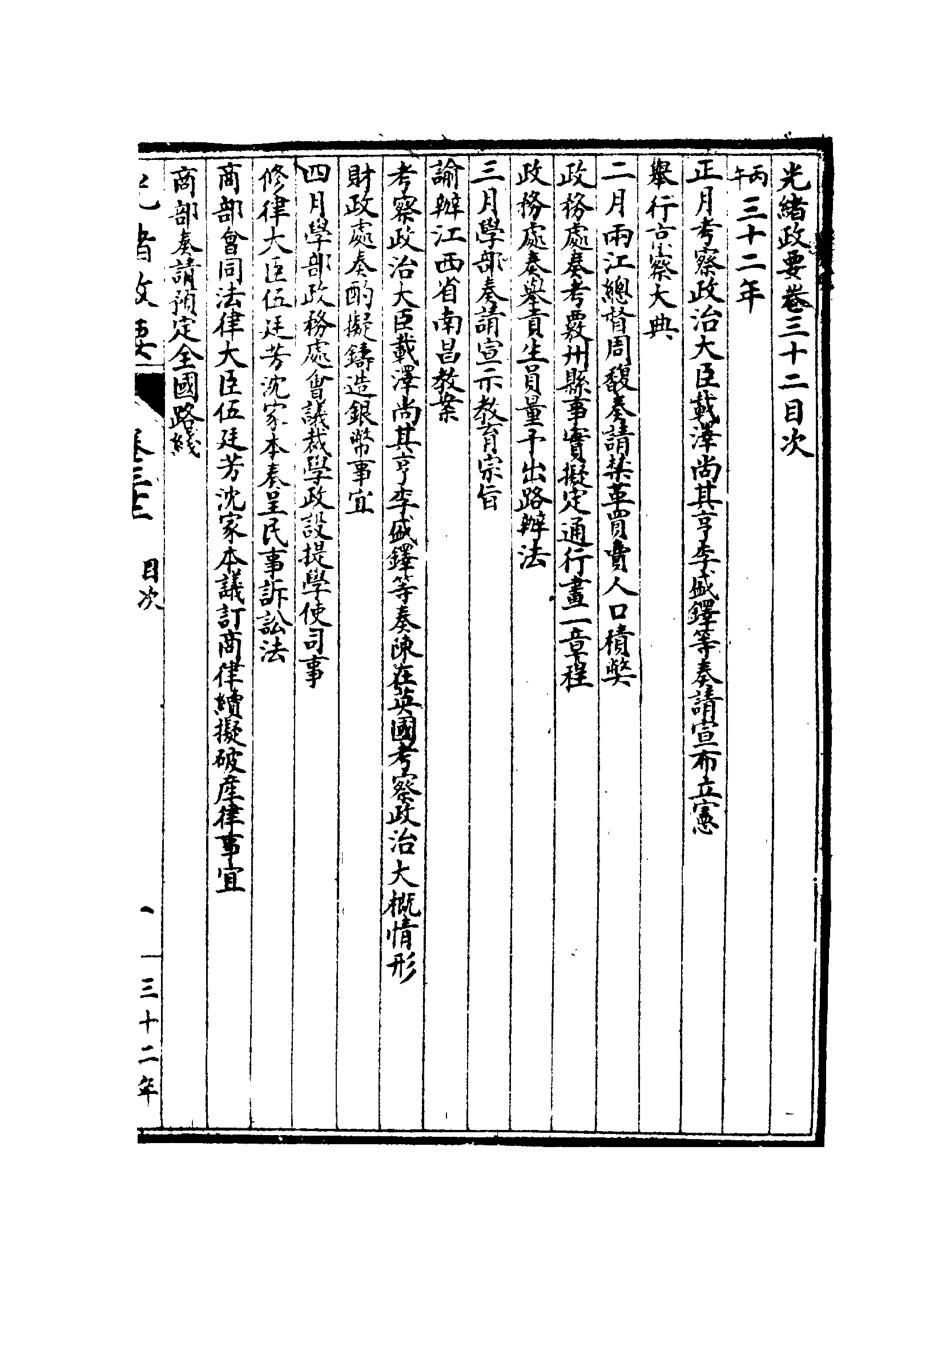 光緒政要卷三十二目次
丙午三十二年
正月考察政治大臣載澤尚其亨李盛鐸等奏請宣布立憲
舉行京察大典
二月兩江總督周馥奏請禁革買賣人口積弊
政務處奏考覈州縣事實擬定通行畫一章程
政務處奏舉貢生員量予出路辦法
三月學部奏請宣示教育宗旨
諭辦江西省南昌教案
考察政治大臣載澤尚其亨李盛鐸等奏陳在英國考察政治大概情形
財政處奏酌擬鑄造銀幣事宜
四月學部政務處會議裁學政設提學使司事
修律大臣伍廷芳沈家本奏呈民事訴訟法
商部會同法律大臣伍廷芳沈家本議訂商律續擬破產律事宜
商部奏請預定全國路綫
光緒政要 卷三十二 目次 一 三十二年